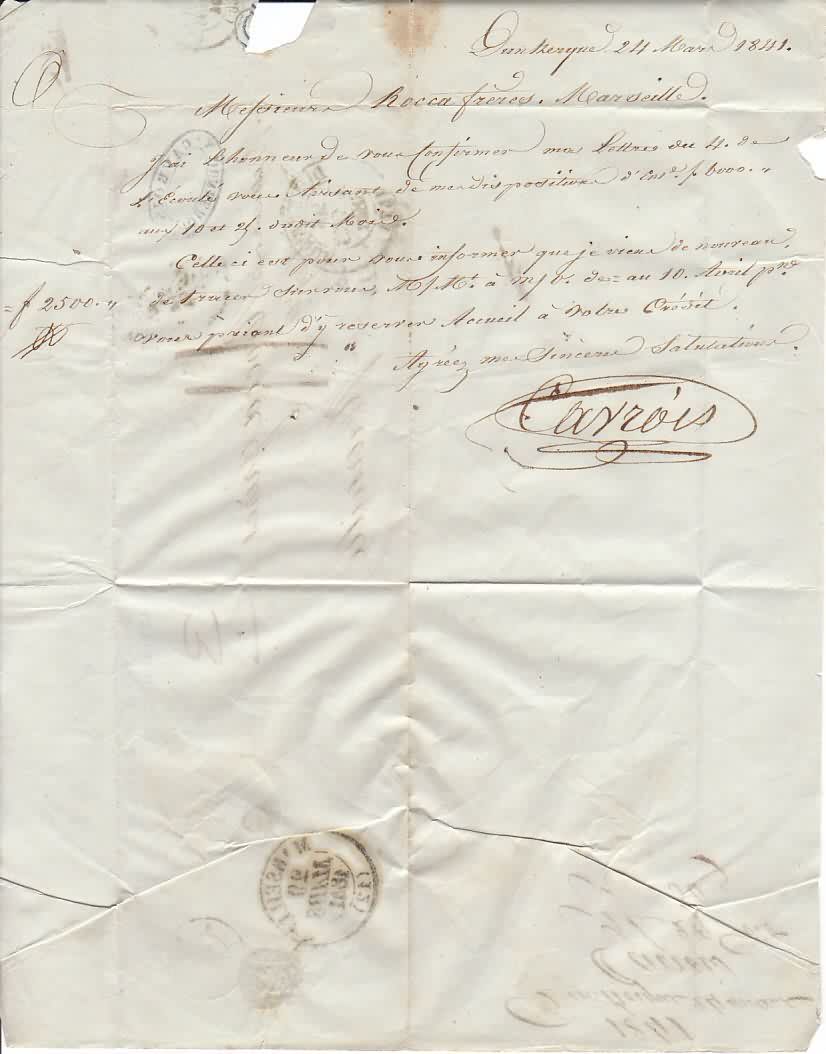 Dunkerque 24 Mars 1841.
Messieurs Rocca frères. Marseille.
J'ai l'honneur de vous Confirmer ma Lettre du 4. de
L'Ecoulé vous Avisant de mes dispositions d'Ens. f 6000. "
aux 10 et 25. dudit Mois.
Celle ci est pour vous informer que je viens de nouveau
= f 2500. " de tracer sur vous, M/Mt. à m/o. de = au 10. Avril pn.
vous priant d'y reserver Accueil à Votre Crédit.
Agréez mes Sincères Salutations.
Cavrois
MARSEILLE (12)
29
MARS
1841
Dunkerque 24 mars
1841